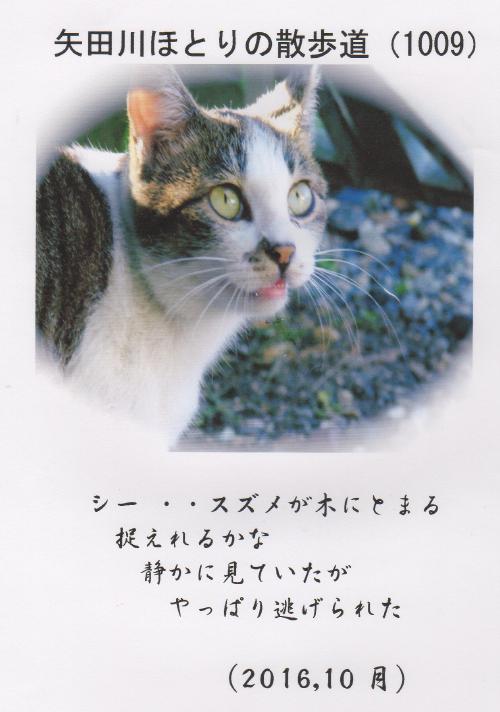 矢田川ほとりの散歩道（1009）
シー ・・スズメが木にとまる
捉えれるかな
静かに見ていたが
やっぱり逃げられた
（2016,10 月）